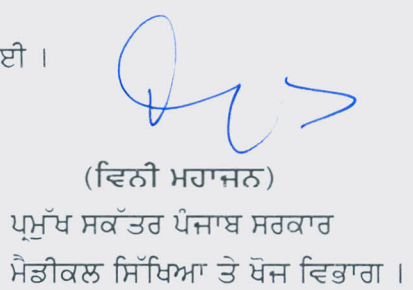 ਈ ।
(ਵਿਨੀ ਮਹਾਜਨ)
ਪ੍ਰਮੁੱਖ ਸਕੱਤਰ ਪੰਜਾਬ ਸਰਕਾਰ
ਮੈਡੀਕਲ ਸਿੱਖਿਆ ਤੇ ਖੋਜ ਵਿਭਾਗ ।